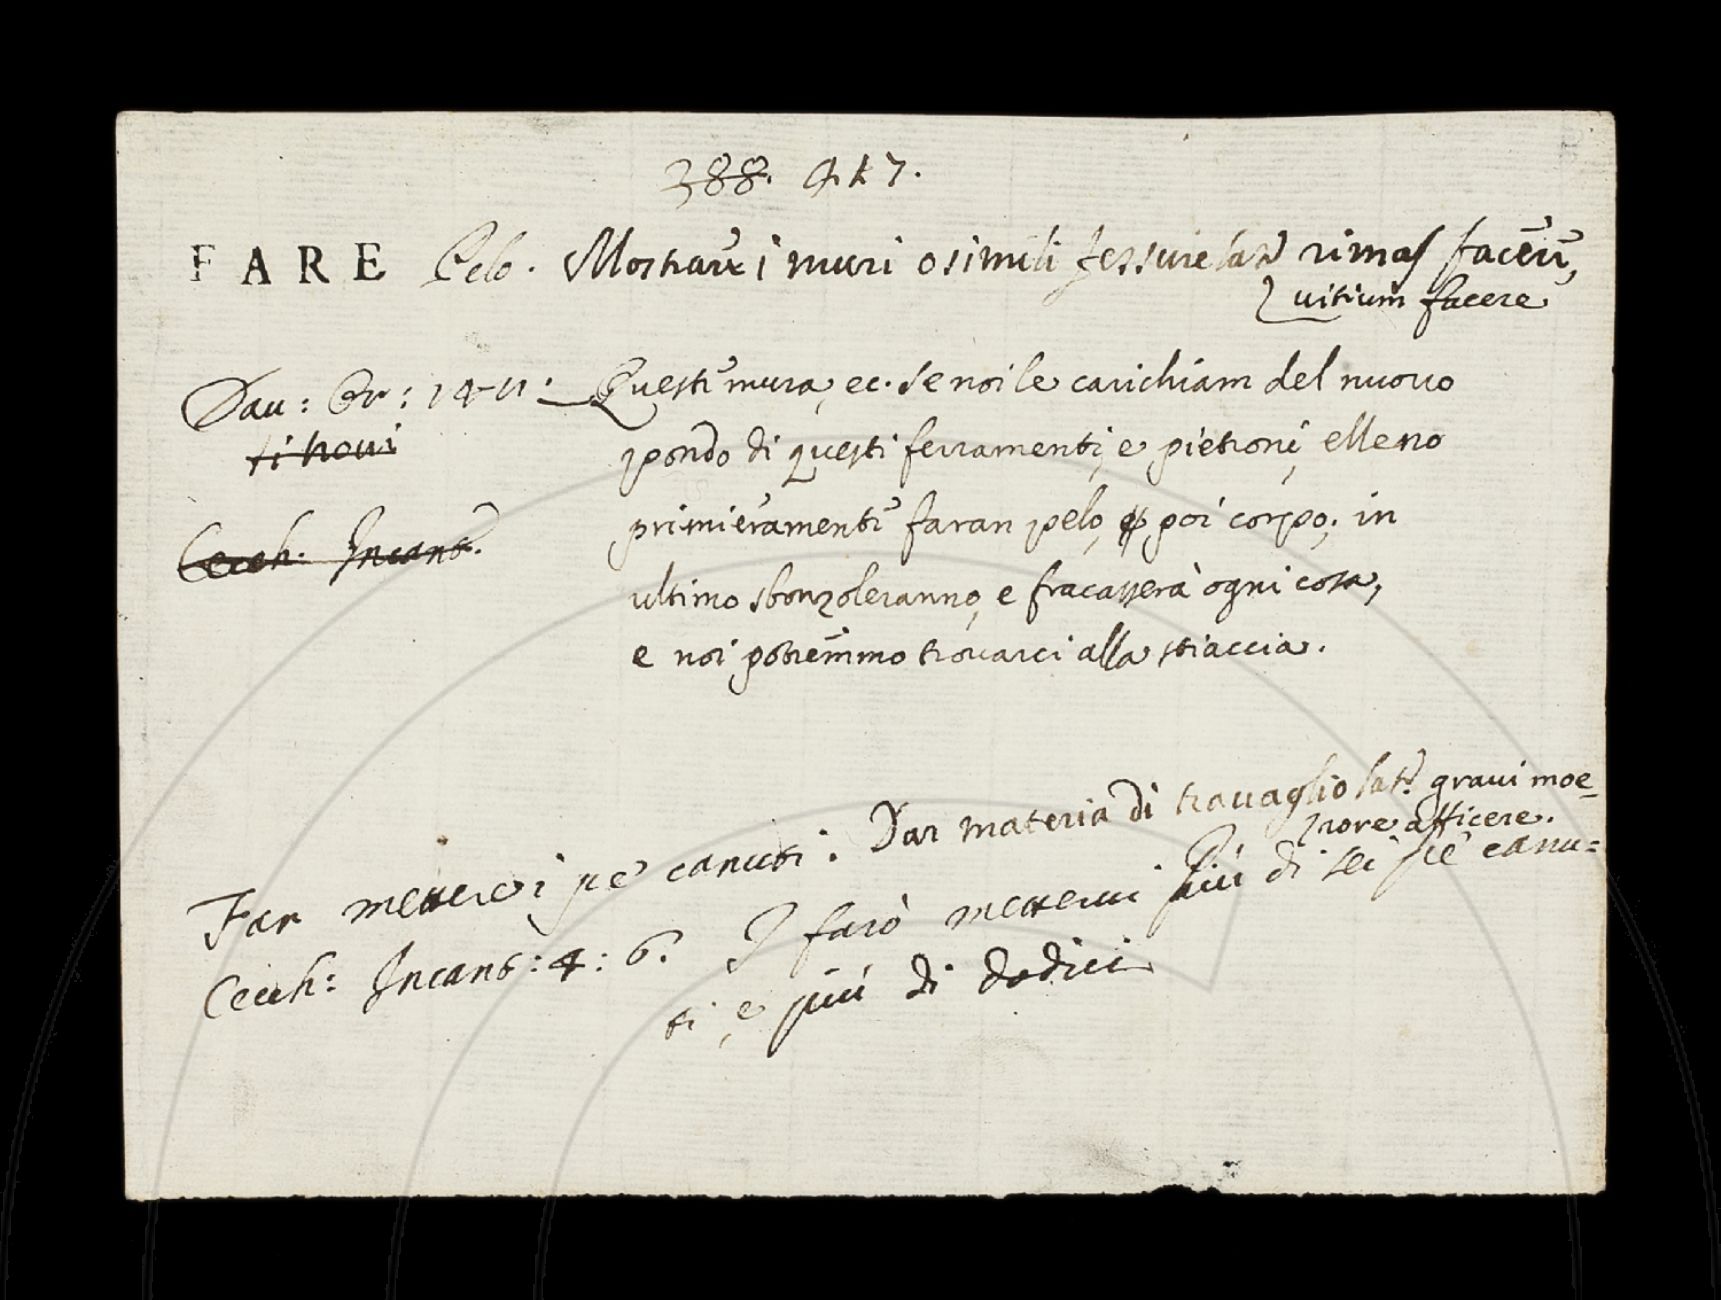 388. 417.
FARE Pelo. Mostrare i muri o simili fessure lat. rimas facere,
vitium facere
Dav: Or: 141: Queste mura, ec. se noi le carichiam del nuovo
ti trovi
pondo di questi ferramenti, e pietroni, elleno
primieramente faran pelo, e poi corpo; in
Cecch. Incant.
ultimo sbonzoleranno, e fracasserà ogni cosa,
e noi potremmo trovarci alla stiaccia.
Far mettere i pe' canuti. Dar materia di travaglio lat. gravi moe-
rore afficere.
Cecch: Incant: 4: 6. I' farò metterui più di sei pe' canu=
ti, e più di dodici